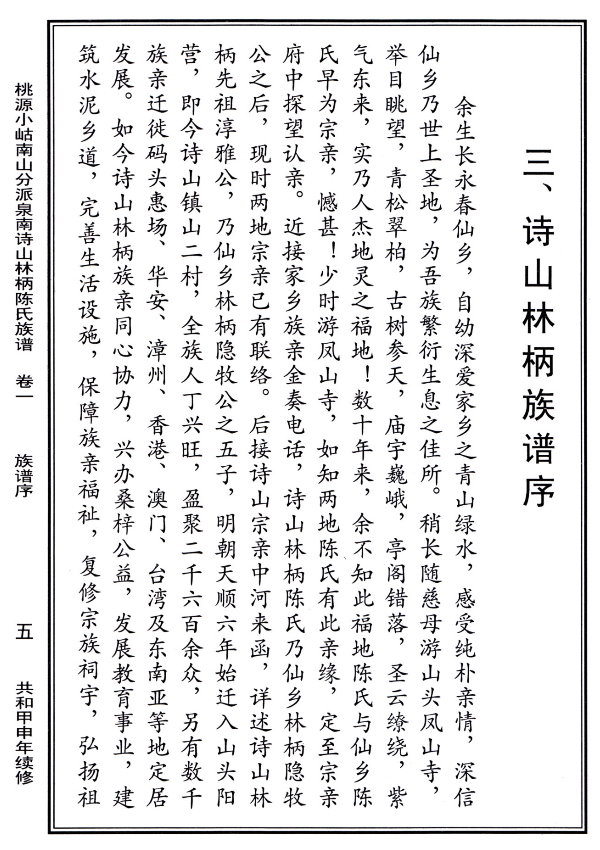 三、诗山林柄族谱序
余生长永春仙乡，自幼深爱家乡之青山绿水，感受纯朴亲情，深信
仙乡乃世上圣地，为吾族繁衍生息之佳所。稍长随慈母游山头凤山寺，
举目眺望，青松翠柏，古树参天，庙宇巍峨，亭阁错落，圣云缭绕，紫
气东来，实乃人杰地灵之福地！数十年来，余不知此福地陈氏与仙乡陈
氏早为宗亲，憾甚！少时游凤山寺，如知两地陈氏有此亲缘，定至宗亲
府中探望认亲。近接家乡族亲金奏电话，诗山林柄陈氏乃仙乡林柄隐牧
公之后，现时两地宗亲已有联络。后接诗山宗亲中河来函，详述诗山林
柄先祖淳雅公，乃仙乡林柄隐牧公之五子，明朝天顺六年始迁入山头阳
营，即今诗山镇山二村，全族人丁兴旺，盈聚二千六百余众，另有数千
族亲迁徙码头惠场、华安、漳州、香港、澳门、台湾及东南亚等地定居
发展。如今诗山林柄族亲同心协力，兴办桑梓公益，发展教育事业，建
筑水泥乡道，完善生活设施，保障族亲福祉，复修宗族祠宇，弘扬祖
桃源小岵南山分派泉南诗山林柄陈氏族谱 卷一 族谱序 五 共和甲申年续修